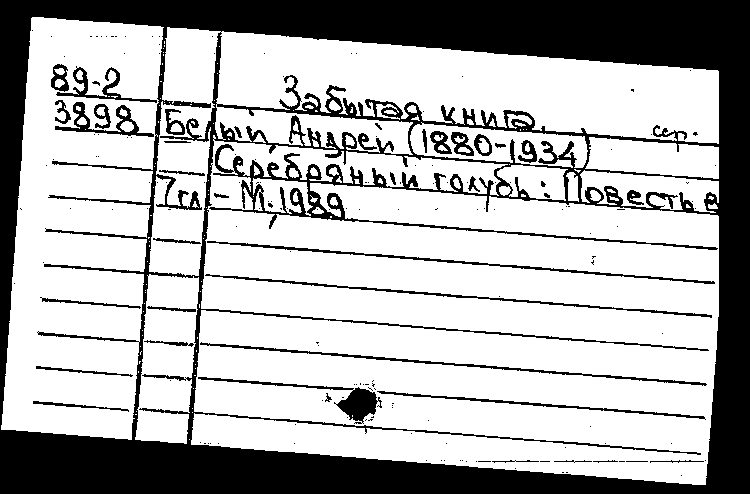 89-2 Забытая книга. сер.
3898 Белый, Андрей (1880-1934)
Серебряный голубь: Повесть в
7 гл. - М., 1989